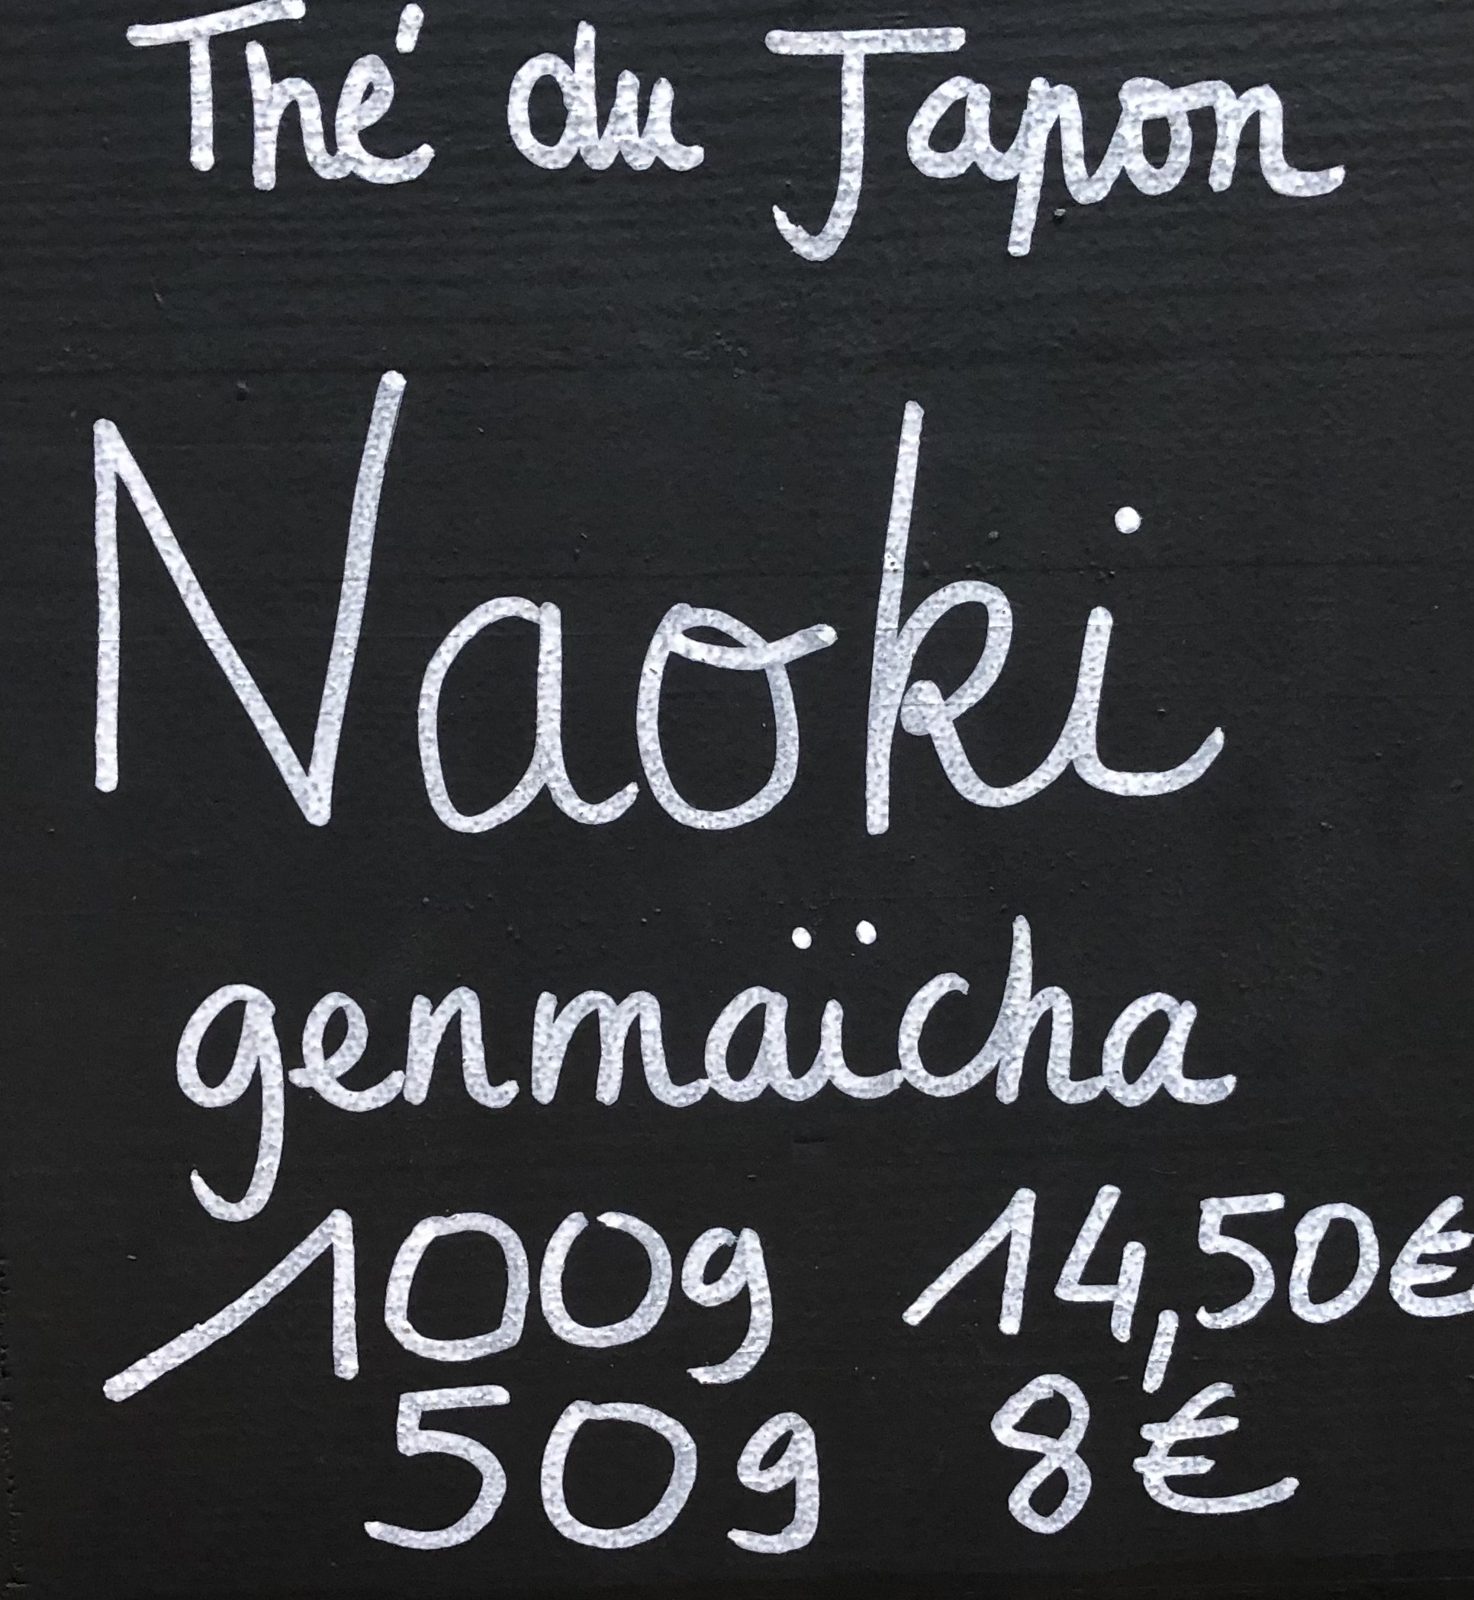 Thé du Japon
Naoki
genmaïcha
100g 14,50€
50g 8€